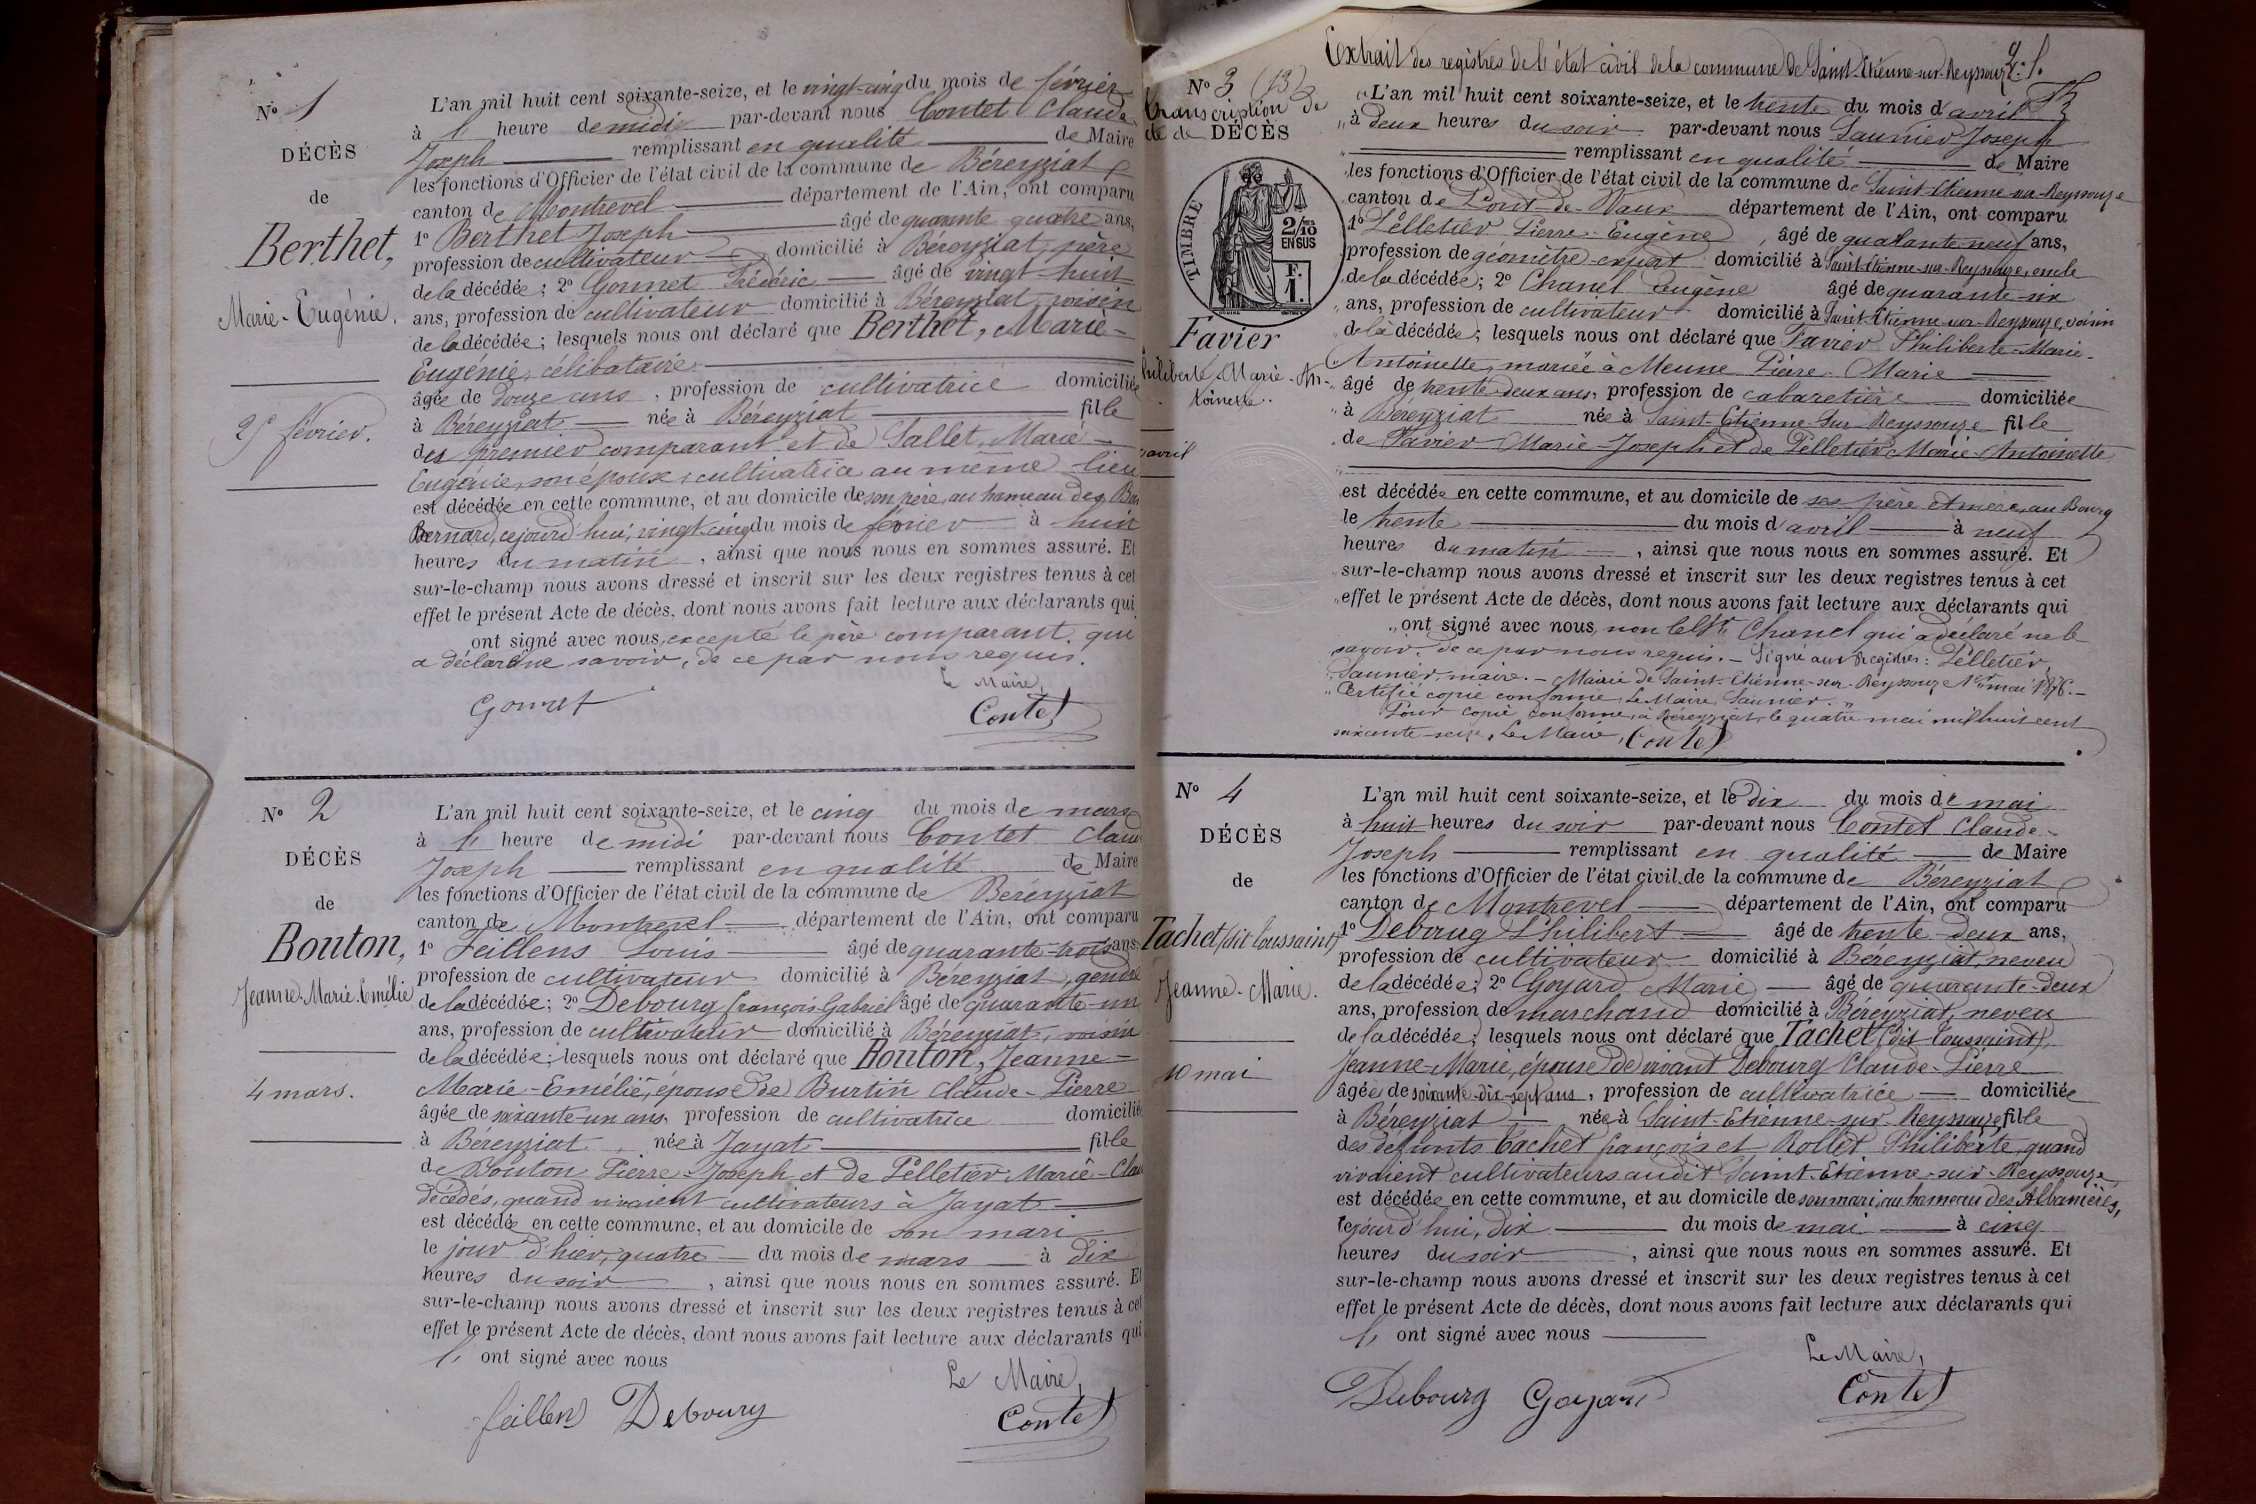 No 1
DÉCÈS
de
Berthet,
Marie-Eugénie.
25 février.
L'an mil huit cent soixante-seize, et le vingt-cinq du mois de février
à 1 heure de midi par-devant nous Contet Claude
Joseph remplissant en qualité de Maire
les fonctions d'Officier de l'état civil de la commune de Béreyziat
canton de Montrevel département de l'Ain, ont comparu
1o Berthet Joseph âgé de quarante quatre ans,
profession de cultivateur domicilié à Béreyziat, père
de la décédée; 2o Gonnet Frédéric âgé de vingt-huit
ans, profession de cultivateur domicilié à Béreyziat, voisin
de la décédée; lesquels nous ont déclaré que Berthet, Marie-
Eugénie, célibataire
âgée de douze ans, profession de cultivatrice domiciliée
à Béreyziat née à Béreyziat fille
des premier comparant et de Sallet, Marie-
Eugénie, son épouse, cultivatrice au même lieu
est décédée en cette commune, et au domicile de son père, au hameau des
Bernard, cejourd'hui, vingt-cinq du mois de février à huit
heures du matin, ainsi que nous nous en sommes assuré. Et
sur-le-champ nous avons dressé et inscrit sur les deux registres tenus à cet
effet le présent Acte de décès, dont nous avons fait lecture aux déclarants qui
ont signé avec nous, excepté le père comparant, qui
a déclaré ne savoir, de ce par nous requis.
Le Maire,
Gonnet Contet
No 2
DÉCÈS
de
Bouton,
Jeanne-Marie-Emélie
4 mars.
L'an mil huit cent soixante-seize, et le cinq du mois de mars
à 1 heure de midi par-devant nous Contet Claude
Joseph remplissant en qualité de Maire
les fonctions d'Officier de l'état civil de la commune de Béreyziat
canton de Montrevel département de l'Ain, ont comparu
1o Feillens Louis âgé de quarante-trois ans,
profession de cultivateur domicilié à Béreyziat, gendre
de la décédée; 2o Debourg François Gabriel âgé de quarante-un
ans, profession de cultivateur domicilié à Béreyziat, voisin
de la décédée; lesquels nous ont déclaré que Bouton, Jeanne-
Marie-Emélie, épouse de Burtin Claude-Pierre
âgée de soixante-un ans, profession de cultivatrice domiciliée
à Béreyziat, née à Jayat fille
de Bouton Pierre-Joseph et de Pelletier Marie-Clau
décédés, quand vivaient cultivateurs à Jayat
est décédée en cette commune, et au domicile de son mari
le jour d'hier, quatre du mois de mars à dix
heures du soir, ainsi que nous nous en sommes assuré. Et
sur-le-champ nous avons dressé et inscrit sur les deux registres tenus à cet
effet le présent Acte de décès, dont nous avons fait lecture aux déclarants qui
ont signé avec nous
Le Maire,
feillens Debourg Contet
Extrait des registres de l'état civil de la commune de Saint-Etienne-sur-Reyssouze
No 3 (13)
transcription de
de DÉCÈS
TIMBRE
2/10
EN SUS
F.
1.
Favier
Philiberte-Marie-An-
toinette.
avril
"L'an mil huit cent soixante-seize, et le trente du mois d'avril
"à deux heures du soir par-devant nous Saunier Joseph
remplissant en qualité de Maire
"les fonctions d'Officier de l'état civil de la commune de Saint-Etienne-sur-Reyssouze
canton de Pont-de-Vaux département de l'Ain, ont comparu
1o Pelletier Pierre-Eugène, âgé de quarante-neuf ans,
profession de géomètre-expert domicilié à Saint-Etienne-sur-Reyssouze, oncle
de la décédée; 2o Chanel Eugène âgé de quarante-six
ans, profession de cultivateur domicilié à Saint-Etienne-sur-Reyssouze, voisin
de la décédée; lesquels nous ont déclaré que Favier Philiberte-Marie-
Antoinette, mariée à Meune Pierre-Marie
âgé de trente-deux ans, profession de cabaretière domiciliée
"à Béreyziat née à Saint-Etienne-sur-Reyssouze fille
"de Favier Marie-Joseph et de Pelletier Marie-Antoinette
est décédée en cette commune, et au domicile de ses père et mère, au Bourg
le trente du mois d'avril à neuf
heures du matin, ainsi que nous nous en sommes assuré. Et
sur-le-champ nous avons dressé et inscrit sur les deux registres tenus à cet
"effet le présent Acte de décès, dont nous avons fait lecture aux déclarants qui
"ont signé avec nous, non led. Sr. Chanel qui a déclaré ne le
savoir, de ce par nous requis. - Signé aux Registres: Pelletier,
Saunier, maire. - Mairie de Saint-Etienne-sur-Reyssouze 1er mai 1876. -
"Certifié copie conforme, Le Maire, Saunier."
Pour copie conforme, à Béreyziat, le quatre mai mil huit cent
soixante-seize, Le Maire, Contet
No 4
DÉCÈS
de
Tachet (dit Toussaint)
Jeanne-Marie.
10 mai
L'an mil huit cent soixante-seize, et le dix du mois de mai
à huit heures du soir par-devant nous Contet Claude-
Joseph remplissant en qualité de Maire
les fonctions d'Officier de l'état civil de la commune de Béreyziat
canton de Montrevel département de l'Ain, ont comparu
1o Debourg Philibert âgé de trente-deux ans,
profession de cultivateur domicilié à Béreyziat, neveu
de la décédée; 2o Goyard Marie âgé de quarante-deux
ans, profession de marchand domicilié à Béreyziat, neveu
de la décédée; lesquels nous ont déclaré que Tachet (dit Toussaint),
Jeanne-Marie, épouse de vivant Debourg Claude-Pierre
âgée de soixante-dix-sept ans, profession de cultivatrice domiciliée
à Béreyziat née à Saint-Etienne-sur-Reyssouze, fille
des défunts Tachet François et Rollet Philiberte, quand
vivaient cultivateurs audit Saint-Etienne-sur-Reyssouze
est décédée en cette commune, et au domicile de son mari, au hameau des Albanières,
cejourd'hui, dix du mois de mai à cinq
heures du soir, ainsi que nous nous en sommes assuré. Et
sur-le-champ nous avons dressé et inscrit sur les deux registres tenus à cet
effet le présent Acte de décès, dont nous avons fait lecture aux déclarants qui
ont signé avec nous
Le Maire,
Debourg Goyard Contet